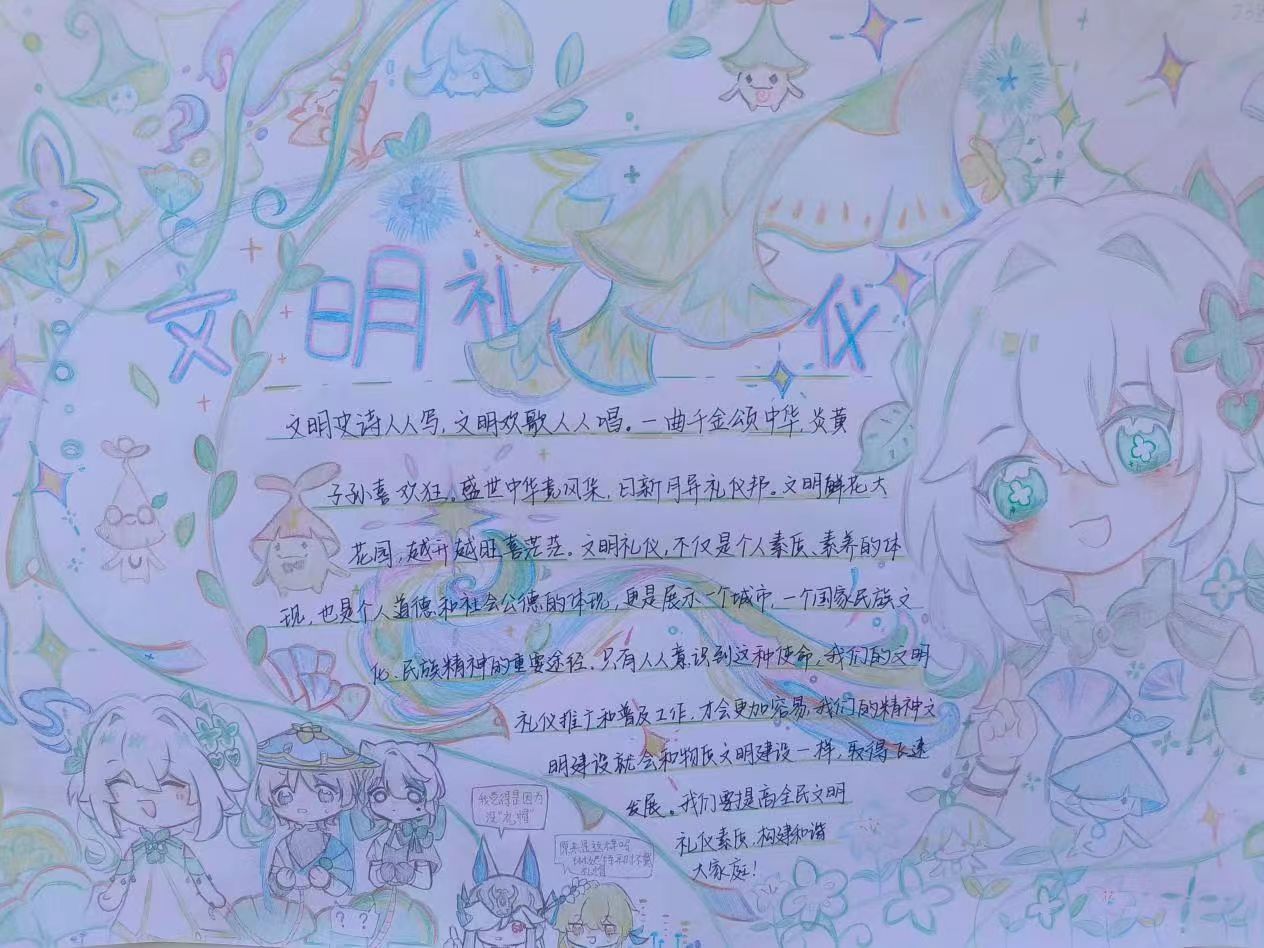 文明礼仪
文明史诗人人写，文明欢歌人人唱。一曲千金颂中华，炎黄
子孙喜欢狂。盛世中华竞风华，日新月异礼仪邦。文明鲜花大
花园，越开越旺喜茫茫。文明礼仪，不仅是个人素质、素养的体
现，也是个人道德和社会公德的体现，更是展示一个城市，一个国家民族文
化、民族精神的重要途径。只有人人意识到这种使命，我们的文明
礼仪推广和普及工作，才会更加容易，我们的精神文
明建设就会和物质文明建设一样，取得飞速
发展。我们要提高全民文明
礼仪素质，构建和谐
大家庭！
我觉得是因为
没“礼帽”
原来是这样吗
? ?